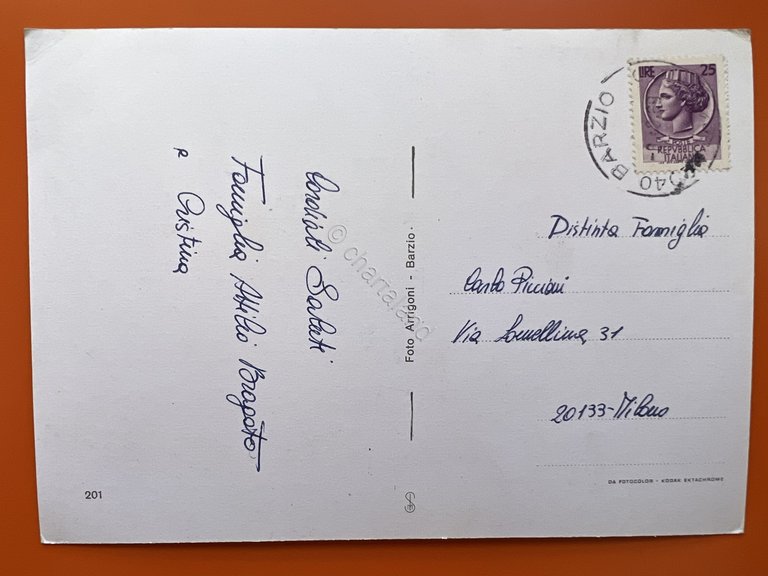 Cordiali Saluti
Famiglia Attilio Bragato
e Cristina
Foto Arrigoni - Barzio.
201
LIRE 25
POSTE
REPVBBLICA
ITALIANA
BARZIO
040
Distinta Famiglia
Carlo Piccioni
Via Lomellina, 31
20133-Milano
DA FOTOCOLOR - KODAK EKTACHROME
© chartaland